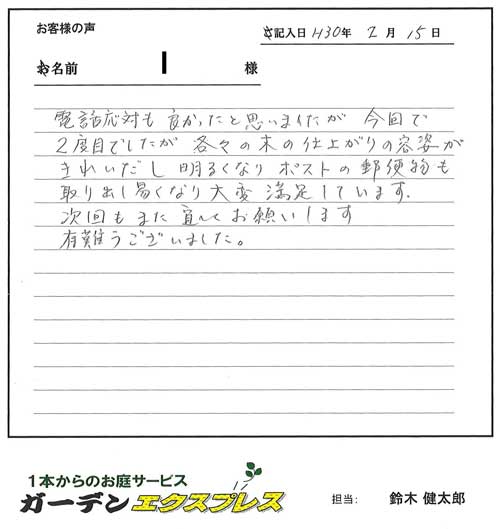 お客様の声
ご記入日 H30年 2月 15日
お名前 様
電話応対も良かったと思いましたが 今回で
2度目でしたが 各々の木の仕上がりの容姿が
きれいだし 明るくなり ポストの郵便物も
取り出し易くなり大変満足しています.
次回もまた宜しくお願いします
有難うございました。
1本からのお庭サービス
ガーデンエクスプレス
担当: 鈴木 健太郎